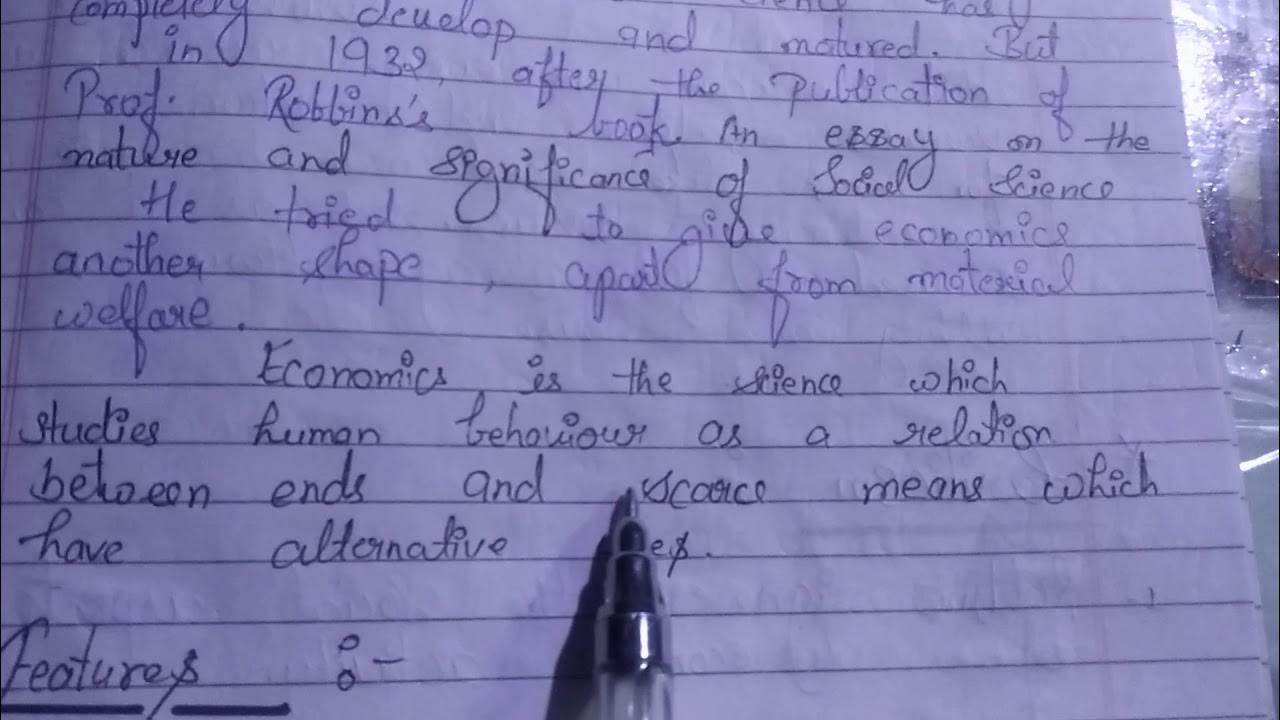 completely develop and matured. But
in 1932, after the Publication of
Prof. Robbins's book An essay on the
nature and significance of Social Science
He tried to give economics
another shape, apart from material
welfare.
Economics is the science which
studies human behaviour as a relation
between ends and scarce means which
have alternative es.
Features :-